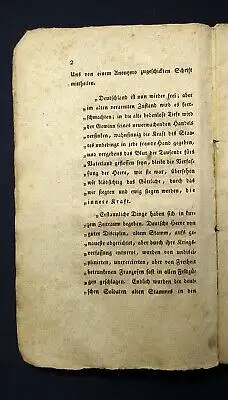 2
Uns von einem Anonymo zugeschickten Schrift
mittheilen.
„Deutschland ist nun wieder frei; aber
„im alten verarmten Zustand wird es fort-
„schmachten; in die alte bodenlose Tiefe wird
„der Gewinn seines neuerwachenden Handels
„versinken, wahnsinnig die Kraft des Staa-
„tes unbedingt in jede fremde Hand gegeben,
„und vergebens das Blut der Tausende fürs
„Vaterland geflossen seyn, bleibt die Verfas-
„sung der Heere, wie sie war, übersehen
„wir blödsichtig das Göttliche, durch das
„wir siegten und ewig siegen werden, die
„innere Kraft.
„Erstaunliche Dinge haben sich in kur-
„zem Zeitraum begeben. Deutsche Heere von
„guter Disciplin, altem Stamm, aufs ge-
„naueste abgerichtet, aber durch ihre Kriegs-
„verfassung entnervt, wurden von undisci-
„plinirten, unexercirten, aber von Freiheit
„betrunkenen Franzosen fast in allen Feldzü-
„gen geschlagen. Endlich wurden die deut-
„schen Soldaten alten Stammes in den